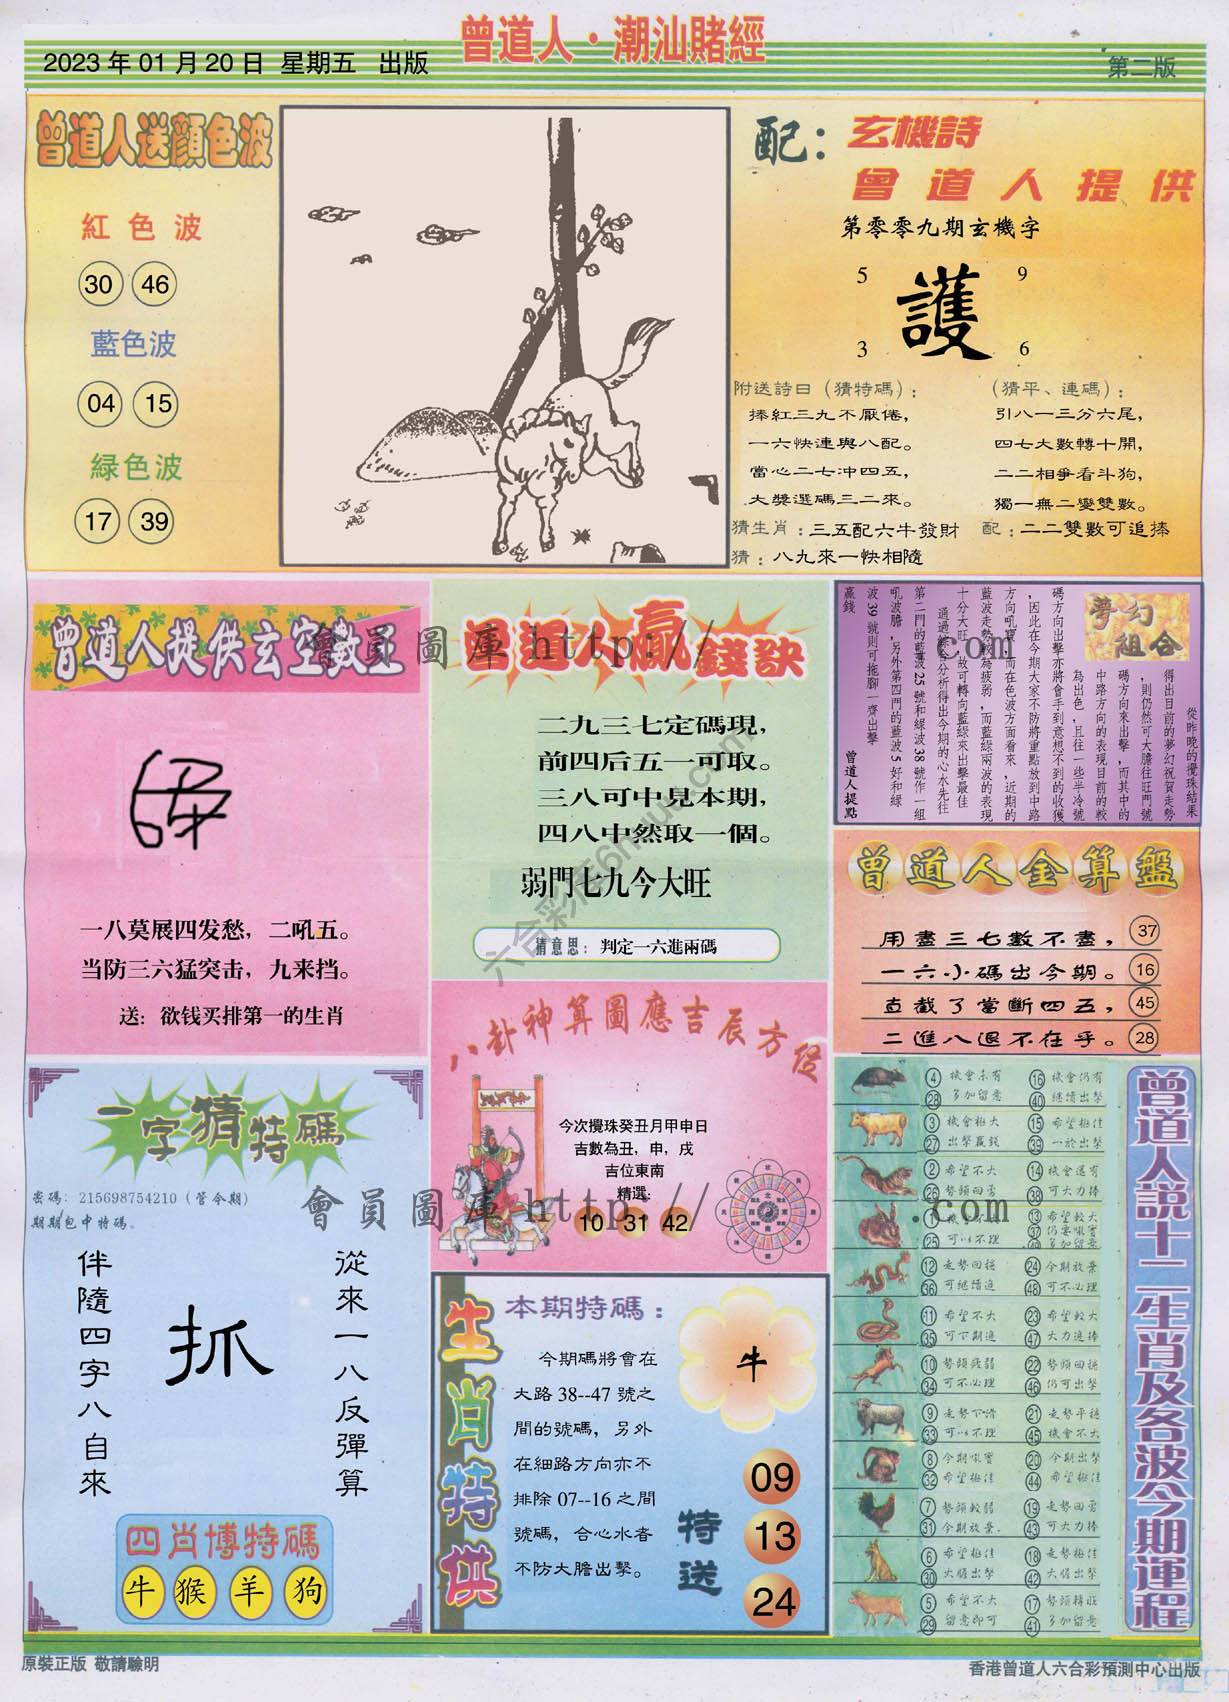 曾道人·潮汕賭經
2023年01月20日 星期五 出版
第二版
曾道人送顏色波
紅色波
30 46
藍色波
04 15
緑色波
17 39
配：
玄機詩
曾道人提供
第零零九期玄機字
5 9
護
3 6
附送詩曰（猜特碼）：
捧紅三九不厭倦，
一六快連與八配。
當心二七冲四五，
大獎選碼三二來。
（猜平、連碼）：
引八一三分六尾，
四七大數轉十開，
二二相爭看斗狗，
獨一無二變雙數。
猜生肖：三五配六牛發財
配：二二雙數可追捧
猜：八九來一快相隨
曾道人提供玄空數王
一八莫展四发愁，二吼五。
当防三六猛突击，九来挡。
送：欲钱买排第一的生肖
曾道人贏錢訣
二九三七定碼現，
前四后五一可取。
三八可中見本期，
四八中然取一個。
弱門七九今大旺
猜意思：判定一六進兩碼
夢幻組合
從昨晚的攪珠結果
得出目前的夢幻祝賀走勢
，則仍然可大膽往旺門號
碼方向來出擊，而其中的
中路方向的表現目前的較
為出色，且往一些半冷號
碼方向出擊亦將會手到意想不到的收獲
，因此在今期大家不防將重點放到中路
方向吼寶，而在色波方面看來，近期的
藍波走勢較為疲弱，而藍綠兩波的表現
十分大旺，故可轉向藍綠來出擊最佳
通過綜合分析得出今期的心水先往
第二門的藍波25號和綠波38號作一組
吼波膽，另外第四門的藍波5好和綠
波39號則可拖腳一齊出擊
贏錢
曾道人提點
曾道人金算盤
用盡三七數不盡， 37
一六小碼出今期。 16
直截了當斷四五， 45
二進八退不在乎。 28
八卦神算圖應吉辰方位
今次攪珠癸丑月甲申日
吉數為丑，申，戌
吉位東南
精選:
10 31 42
一字猜特碼
密碼：215698754210（管今期）
期期包中特碼。
從來一八反彈算
抓
伴隨四字八自來
四肖博特碼
牛 猴 羊 狗
生肖特供
本期特碼：
今期碼將會在
大路38--47號之
間的號碼，另外
在細路方向亦不
排除07--16之間
號碼，合心水者
不防大膽出擊。
牛
特送
09
13
24
曾道人説十二生肖及各波今期運程
4 28 機會未有 多加留意 16 40 機會仍有 继續出擊
3 27 機會極大 出擊贏錢 15 39 希望極佳 一於出擊
2 26 希望不大 勢頭回勇 14 38 機會還有 可大力捧
1 25 可以不理 13 37 49 希望較大 仍要吼實 多加留意
12 36 走勢回穩 可继續追 24 48 今期放棄 可不必理
11 35 希望不大 可下期追 23 47 希望較大 大力追捧
10 34 勢頭疲弱 可不必理 22 46 勢頭回穩 仍可出擊
9 33 走勢下滑 可以不理 21 45 走勢平穩 機會不大
8 32 今期吼實 希望極佳 20 44 今期出擊 希望極佳
7 31 勢頭較弱 今期放棄. 19 43 走勢回勇 可大力捧
6 30 希望極佳 大膽出擊 18 42 走勢極佳 大膽出擊
5 29 希望不大 留意即可 17 41 勢頭轉旺 多加留意
會員圖庫 http:// .com
會員圖庫 http:// .com
原裝正版 敬請驗明
香港曾道人六合彩預測中心出版